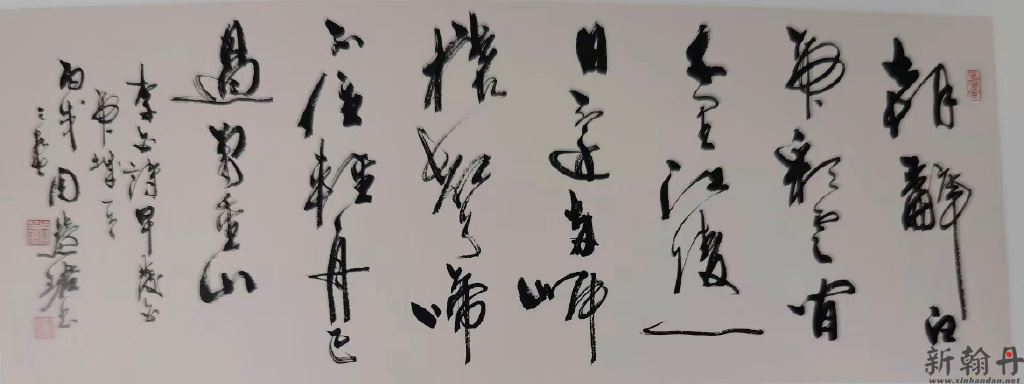 朝辭白
帝彩雲間
千里江陵一
日還兩岸
猿聲啼
不住輕舟已
過萬重山
李白詩早發白
帝城
丙戌
之春
周慧珺书
新翰丹
www.xinhandan.net